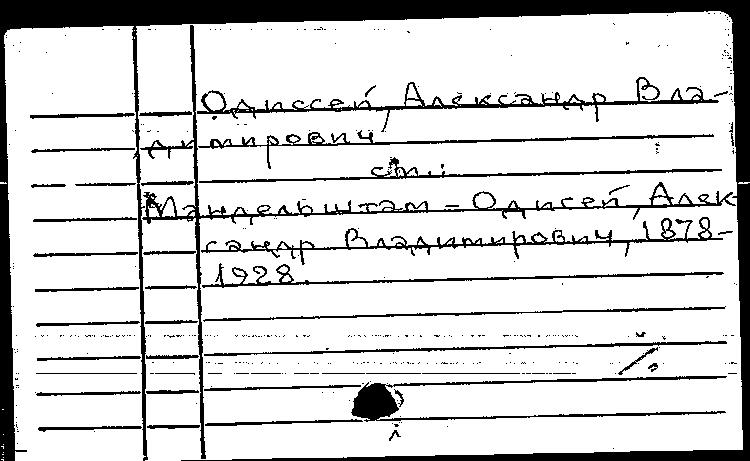 Одиссей, Александр Вла-
димирович
см.:
Мандельштам - Одисей, Алек-
сандр Владимирович, 1878-
1928.